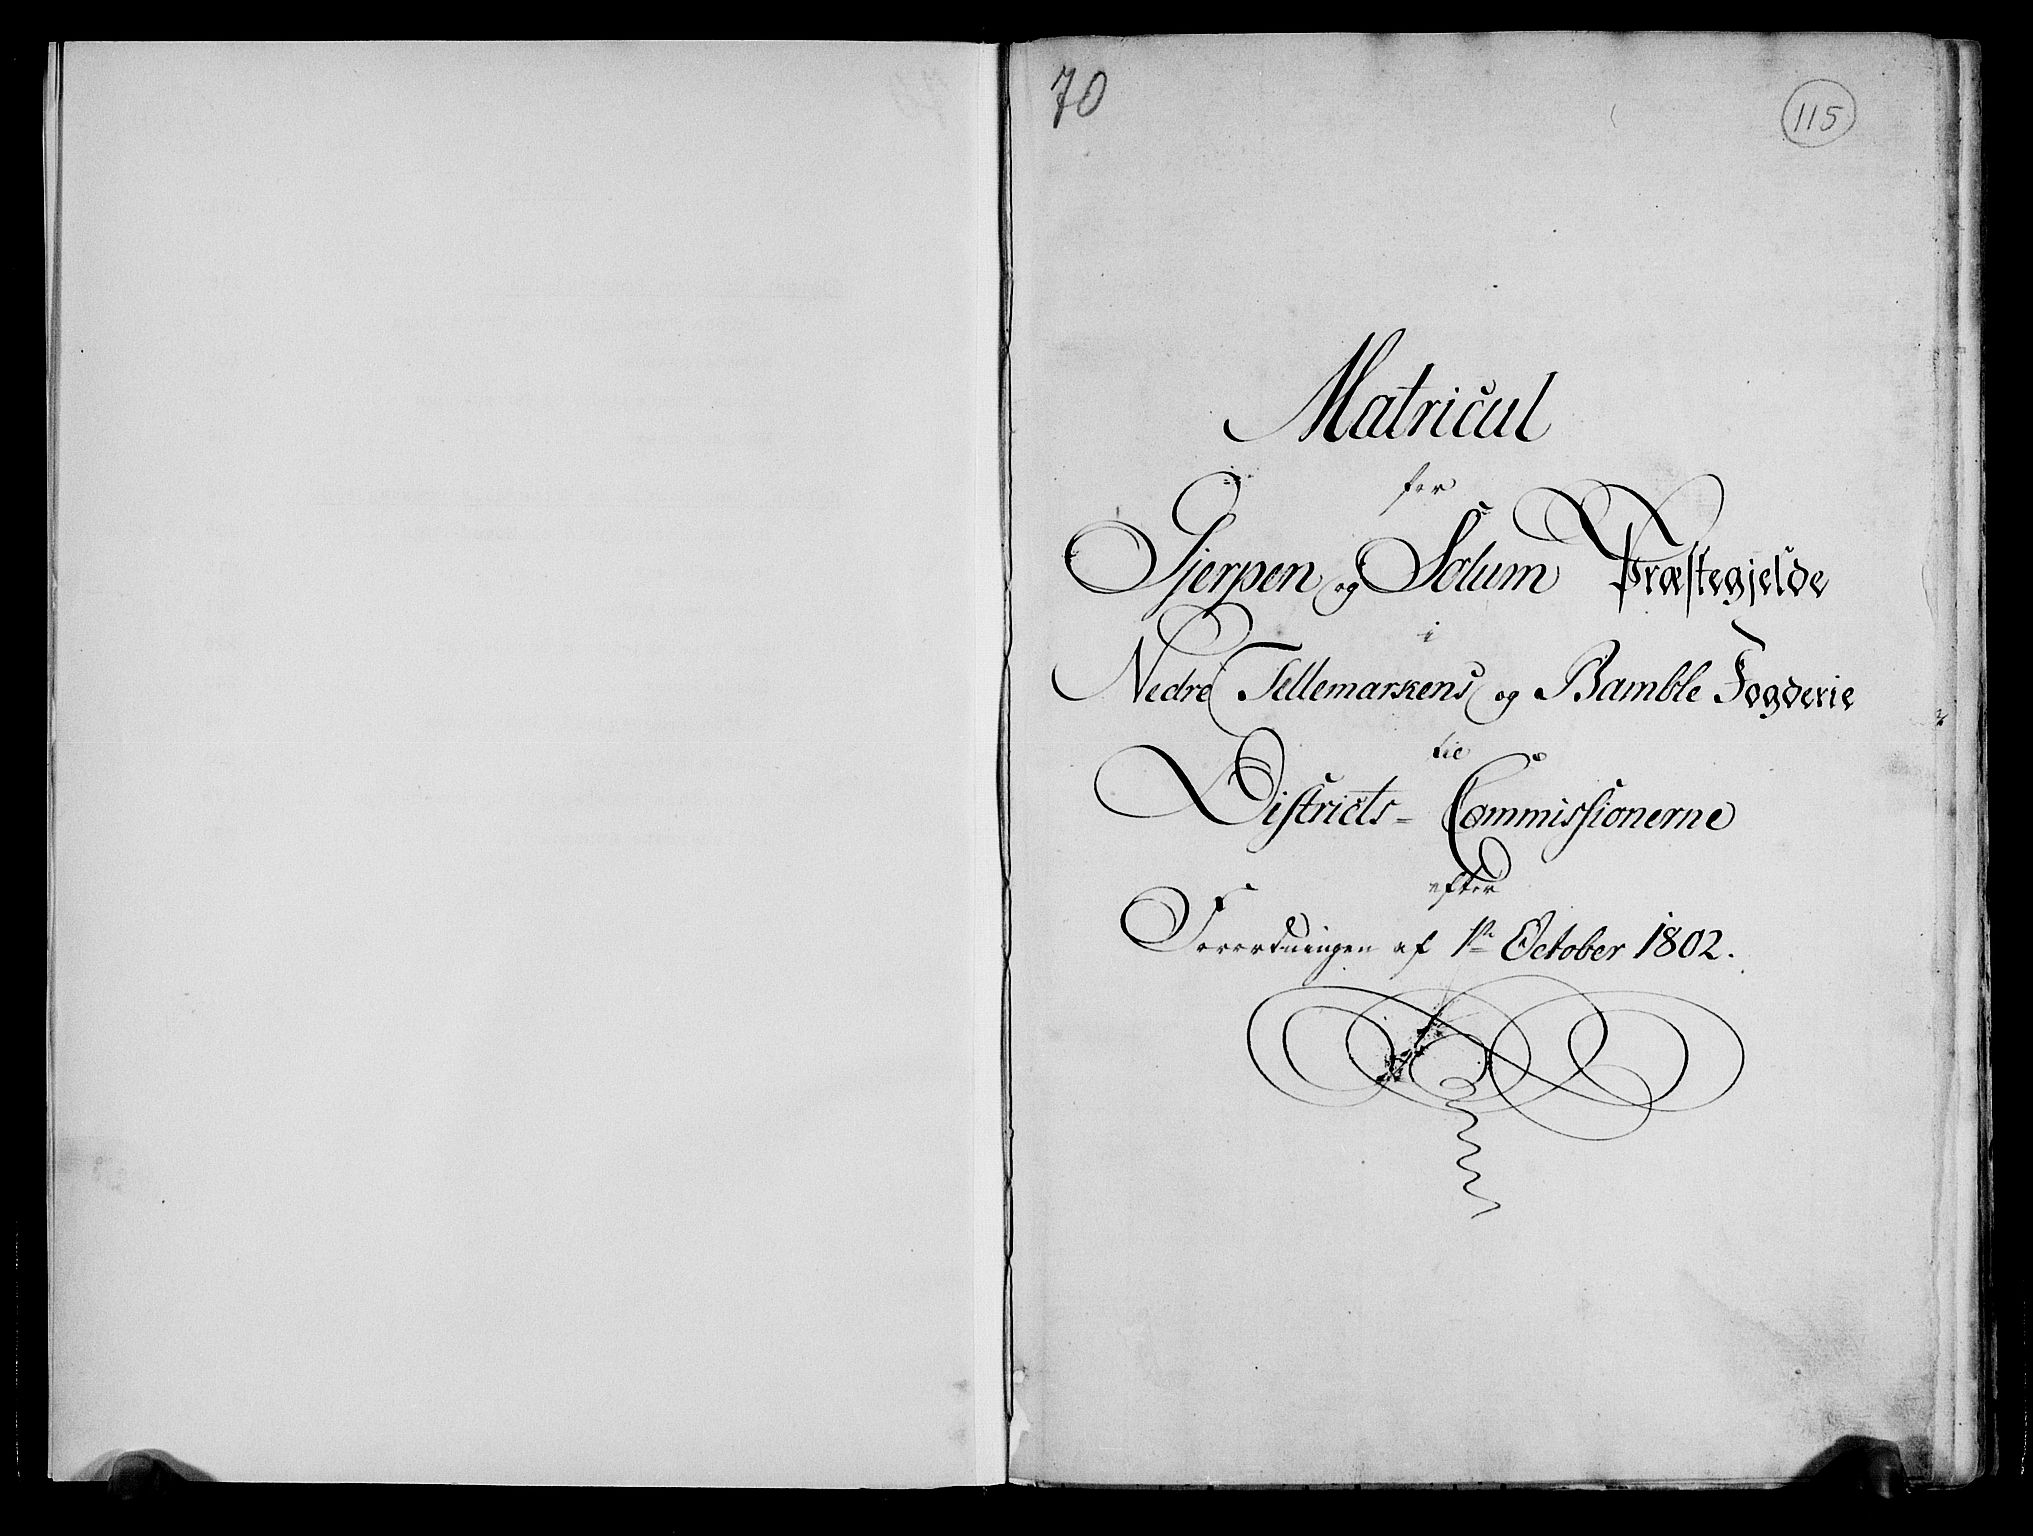 70
115
Matricul
for
Gjerpen og Solum Præstegjelde
i
Nedre Tellemarkens og Bamble Fogderie
til
Districts- Commissionerne
efter
Forordningen af 1ste October 1802.